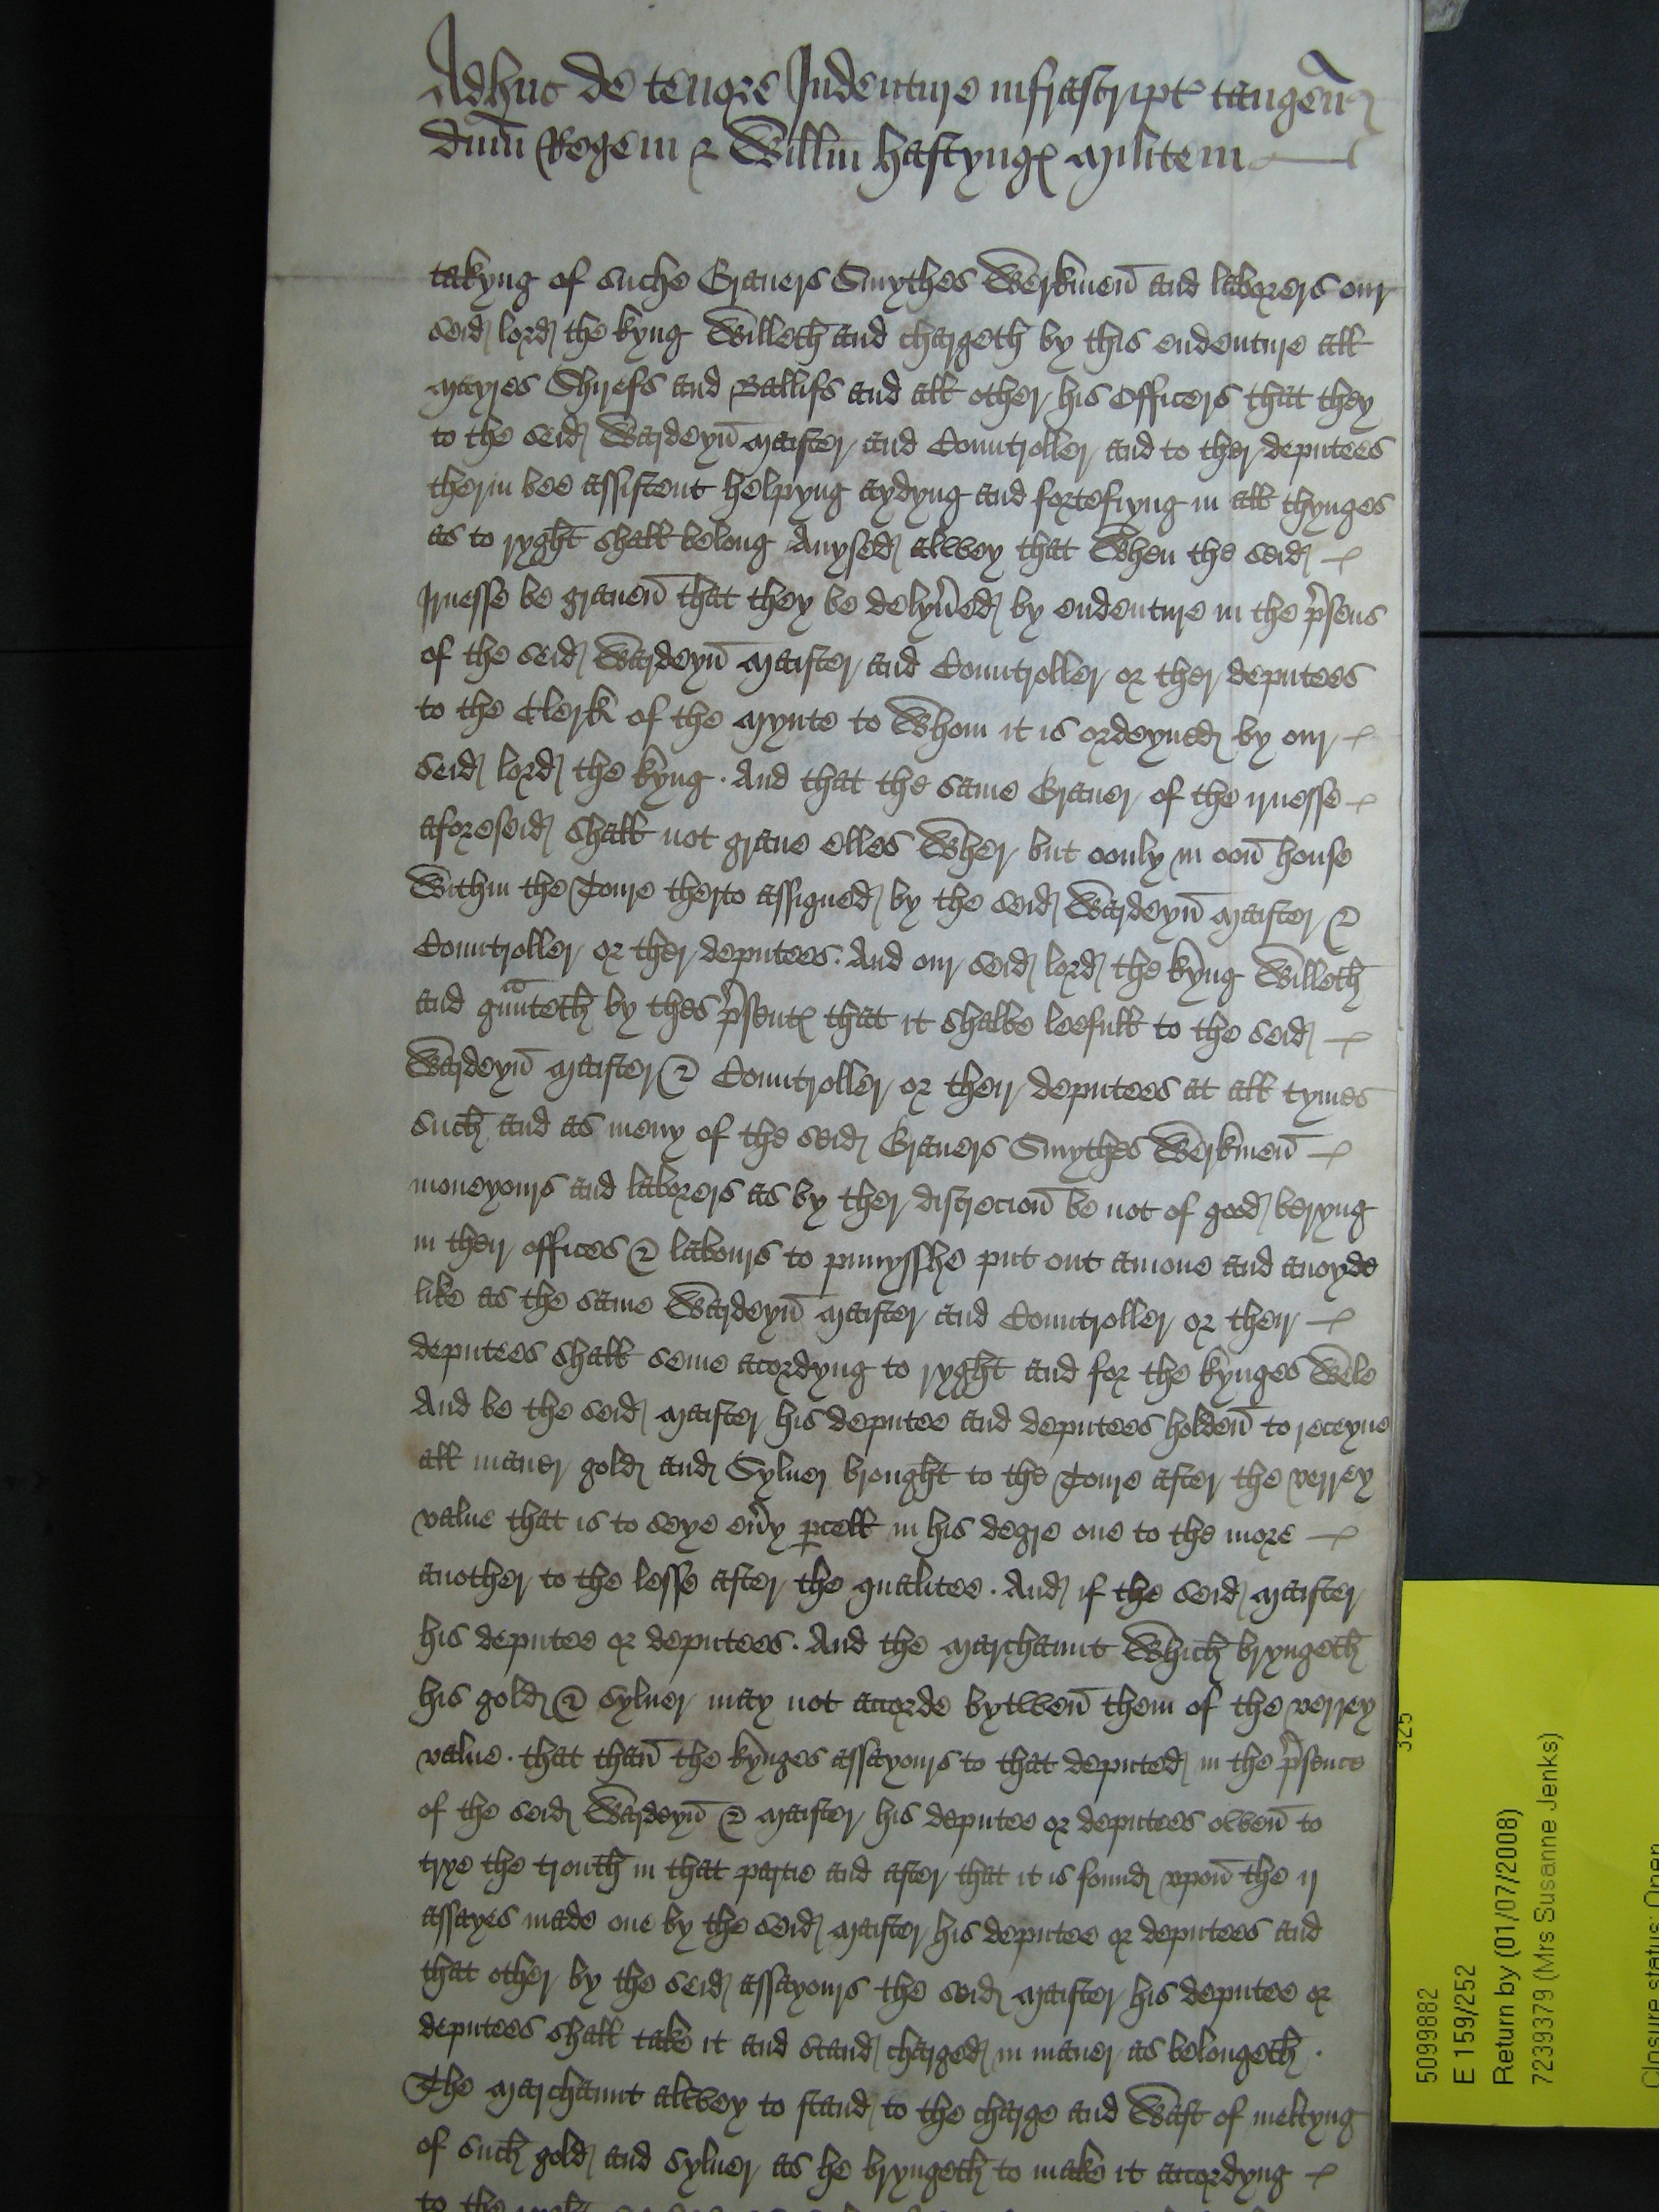 Adhuc de tenore Indenture infrascript tangen
dnm Regem & Willm hastyng militem
takyng of suche Grauers Smythes Werkmen and laborers our
seid lord the kyng Willeth and chargeth by this endenture all
Mayres Shirefs and Baillifs and all other his Officers that they
to the seid Wardeyn Maister and Countroller and to ther deputees
therin bee assistent helpyng aydyng and fortefiyng in all thynges
as to ryght shall belong Auysed alwey that When the seid
Irnesse be grauen that they be delyued by endenture in the psens
of the seid Wardeyn Maister and Countroller or ther deputees
to the Clerk of the Mynte to Whom it is ordeyned by our
seid lord the kyng. And that the same Grauer of the irnesse
aforeseid shall not graue elles Wher but oonly in oon house
Within the Toure therto assigned by the seid Wardeyn Maister &
Countroller or ther deputees. And our seid lord the kyng Willeth
and gunteth by thes psent that it shalbe leefull to the seid
Wardeyn Maister & Countroller or their deputees at all tymes
such and as meny of the seid Grauers Smythes Werkmen
moneyours and laborers as by ther discrecion be not of good beryng
in their offices & labours to punysshe put out amoue and auoyde
like as the same Wardeyn Maister and Countroller or their
deputees shall seme acordyng to ryght and for the kynges Wele
And be the seid Maister his deputee and deputees holden to receyue
all maner gold and Syluer brought to the Toure after the verrey
value that is to seye euy pcell in his degre one to the more
another to the lesse after the qualitee. And if the seid Maister
his deputee or deputees. And the Marchaunt Which bryngeth
his gold & syluer may not accorde bytwen them of the verrey
value. that than the kynges assayours to that deputed in the psence
of the seid Wardeyn & Maister his deputee or deputees owen to
trye the trouth in that partie and after that it is found vpon the ij
assayes made one by the seid Maister his deputee or deputees and
that other by the seid assayours the seid Maister his deputee or
deputees shall take it and stand charged in maner as belongeth.
The Marchaunt alwey to stand to the charge and Wast of meltyng
of such gold and syluer as he bryngeth to make it accordyng
to the
325
5099882
E 159/252
Return by (01/07/2008)
7239379 (Mrs Susanne Jenks)
Closure status: Open